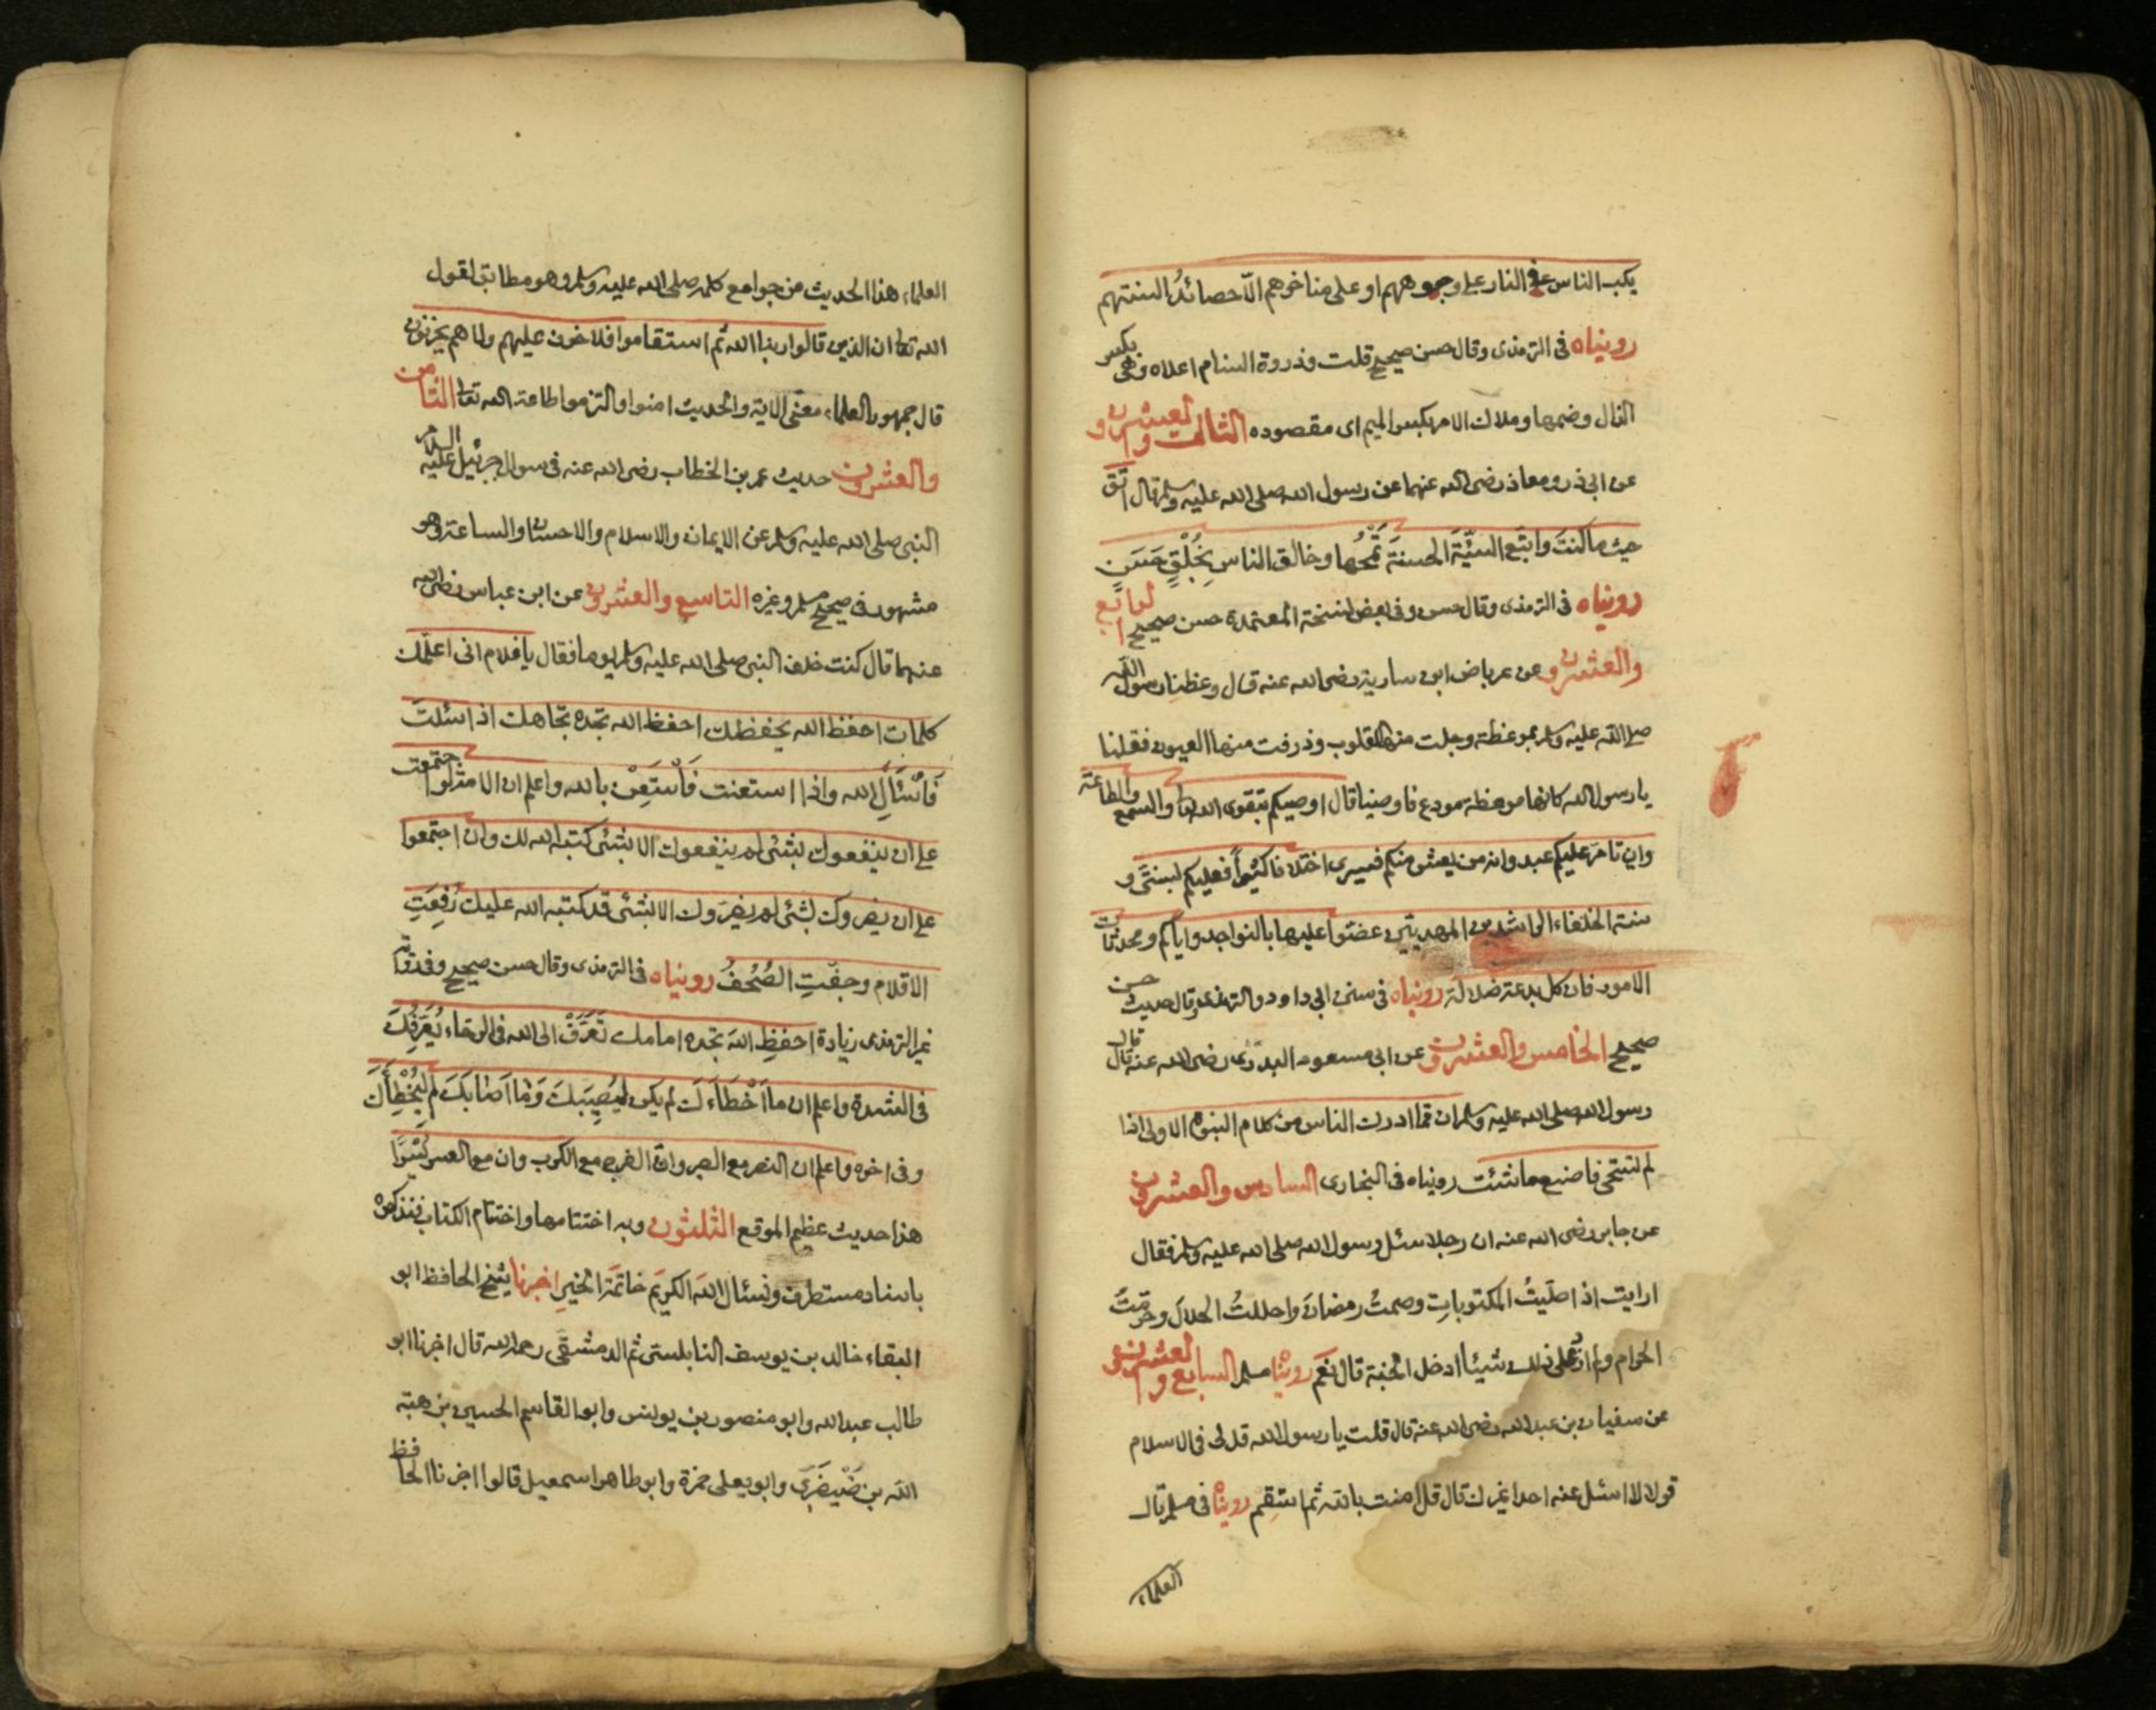 يكب الناس في النار على وجوههم او على مناخرهم الّا حصائدُ السنتهم
روينياه فى الترمذى وقال حسن صحيح قلت وذروة السنام اعلاه وهى بكسر
الذال وضمها وملاك الامر بكسر الميم اى مقصوده الثالث والعشرون
عن ابى ذر ومعاذ رضى الله عنهما عن رسول الله صلى الله عليه وسلم قال اتق
حيث ما كنت واتبع السيّئة الحسنةَ تَمْحُها وخالق الناس بِخُلْقٍ حَسَن
روينياه فى الترمذى وقال حسن وفى بعض نسخة المعتمدة حسن صحيح الرابع
والعشرون عن عرباض ابن سارية رضى الله عنه قال وعظنا رسول الله
صلى الله عليه وسلم بموعظة وجلت منها القلوب وذرفت منها العيون فقلنا
يا رسول الله كانها موعظة مودع فاوصينا قال اوصيكم بتقوى الله تعا والسمع والطاعة
وان تامر عليكم عبد وانه من يعش منكم فسيرى اختلافا كثيراً فعليكم بسنتى و
سنة الخلفاء الراشدين المهديين عضّوا عليها بالنواجد واياكم ومحدثات
الامور فان كل بدعة ضلالة روينياه فى سنن ابى داود والترمذى وقال حديث حسن
صحيح الخامس والعشرون عن ابى مسعود البدرى رضى الله عنه قال قال
رسول الله صلى الله عليه وسلم ان مما ادرك الناس من كلام النبوة الاولى اذا
لم تستحى فاصنع ما شئت روينياه فى البخارى السادس والعشرون
عن جابر رضى الله عنه ان رجلا سئل رسول الله صلى الله عليه وسلم فقال
ارايت اذا صلّيتُ المكتوباتِ وصمتُ رمضانَ واحللتُ الحلالَ وحرّمتُ
الحرام ولم ازد على ذلك شيئا أدخل الجنة قال نَعَم روينا مسلم السابع والعشرون
عن سفيان بن عبدالله رضى الله عنه قال قلت يا رسول الله قل لى فى الاسلام
قولا لا اسئل عنه احدا غيرك قال قل امنت بالله ثم استَقِم روينا فى مسلم قال
العلماء
العلماء هذا الحديث من جوامع كلمه صلى الله عليه وسلم وهو مطابق لقول
الله تعا ان الذين قالوا ربنا الله ثم استقاموا فلا خوف عليهم ولا هم يحزنون
قال جمهور العلماء معنى الاية والحديث امنوا والتزموا طاعة الله تعا الثامن
والعشرون حديث عمر بن الخطاب رضى الله عنه فى سوال جبرئيل عليه السلام
النبى صلى الله عليه وسلم عن الايمان والاسلام والاحسان والساعة وهو
مشهور فى صحيح مسلم وغيره التاسع والعشرون عن ابن عباس رضى الله
عنهما قال كنت خلف النبى صلى الله عليه وسلم يوما فقال يا غلام انى اعلمك
كلمات احفظ الله يحفظك احفظ الله تجده تجاهك اذا سئلتَ
فَاْسْئَالِ الله واذا استعنت فَاْستَعِنْ بالله واعلم ان الامة لو اجتمعت
على ان ينفعوك بشئى لم ينفعوك الا بشئى كتبه الله لك وان اجتمعوا
على ان يضروك بشئى لم يضرّوك الا بشئى قد كتبه الله عليك رُفِعَتِ
الاقلام وجفّتِ الصُحُفُ روينياه فى الترمذى وقال حسن صحيح وفى رواية
غير الترمذى زيادة احفظِ اللهَ تجده امامك تَعَرَّفْ الى الله فى الرخاء يُعَرِّفْكَ
فى الشدة واعلم ان ما اَخْطَاءَكَ لم يكن لِيُصِيبَكَ وَمَا اَصَابَكَ لم ليُخْطِأَكَ
وفى اخره واعلم ان النصر مع الصبر وان الفرج مع الكرب وان مع العسر يُسْرًا
هذا حديث عظيم الموقع الثلثون وبه اختتامها واختتام الكتاب فنذكره
باسناد مستطرف ونسئال اللهَ الكريمَ خاتمَةَ الخيرِ اخبرنا شيخ الحافظ ابو
البقاء خالد بن يوسف النابلسى ثم الدمشقى رحمه الله قال اخبرنا ابو
طالب عبدالله وابو منصور بن يونس وابو القاسم الحسين بن هبة
الله بن صَيْصَرَى وابو يعلى حمزة وابو طاهر اسمعيل قالوا اخبرنا الحافظ